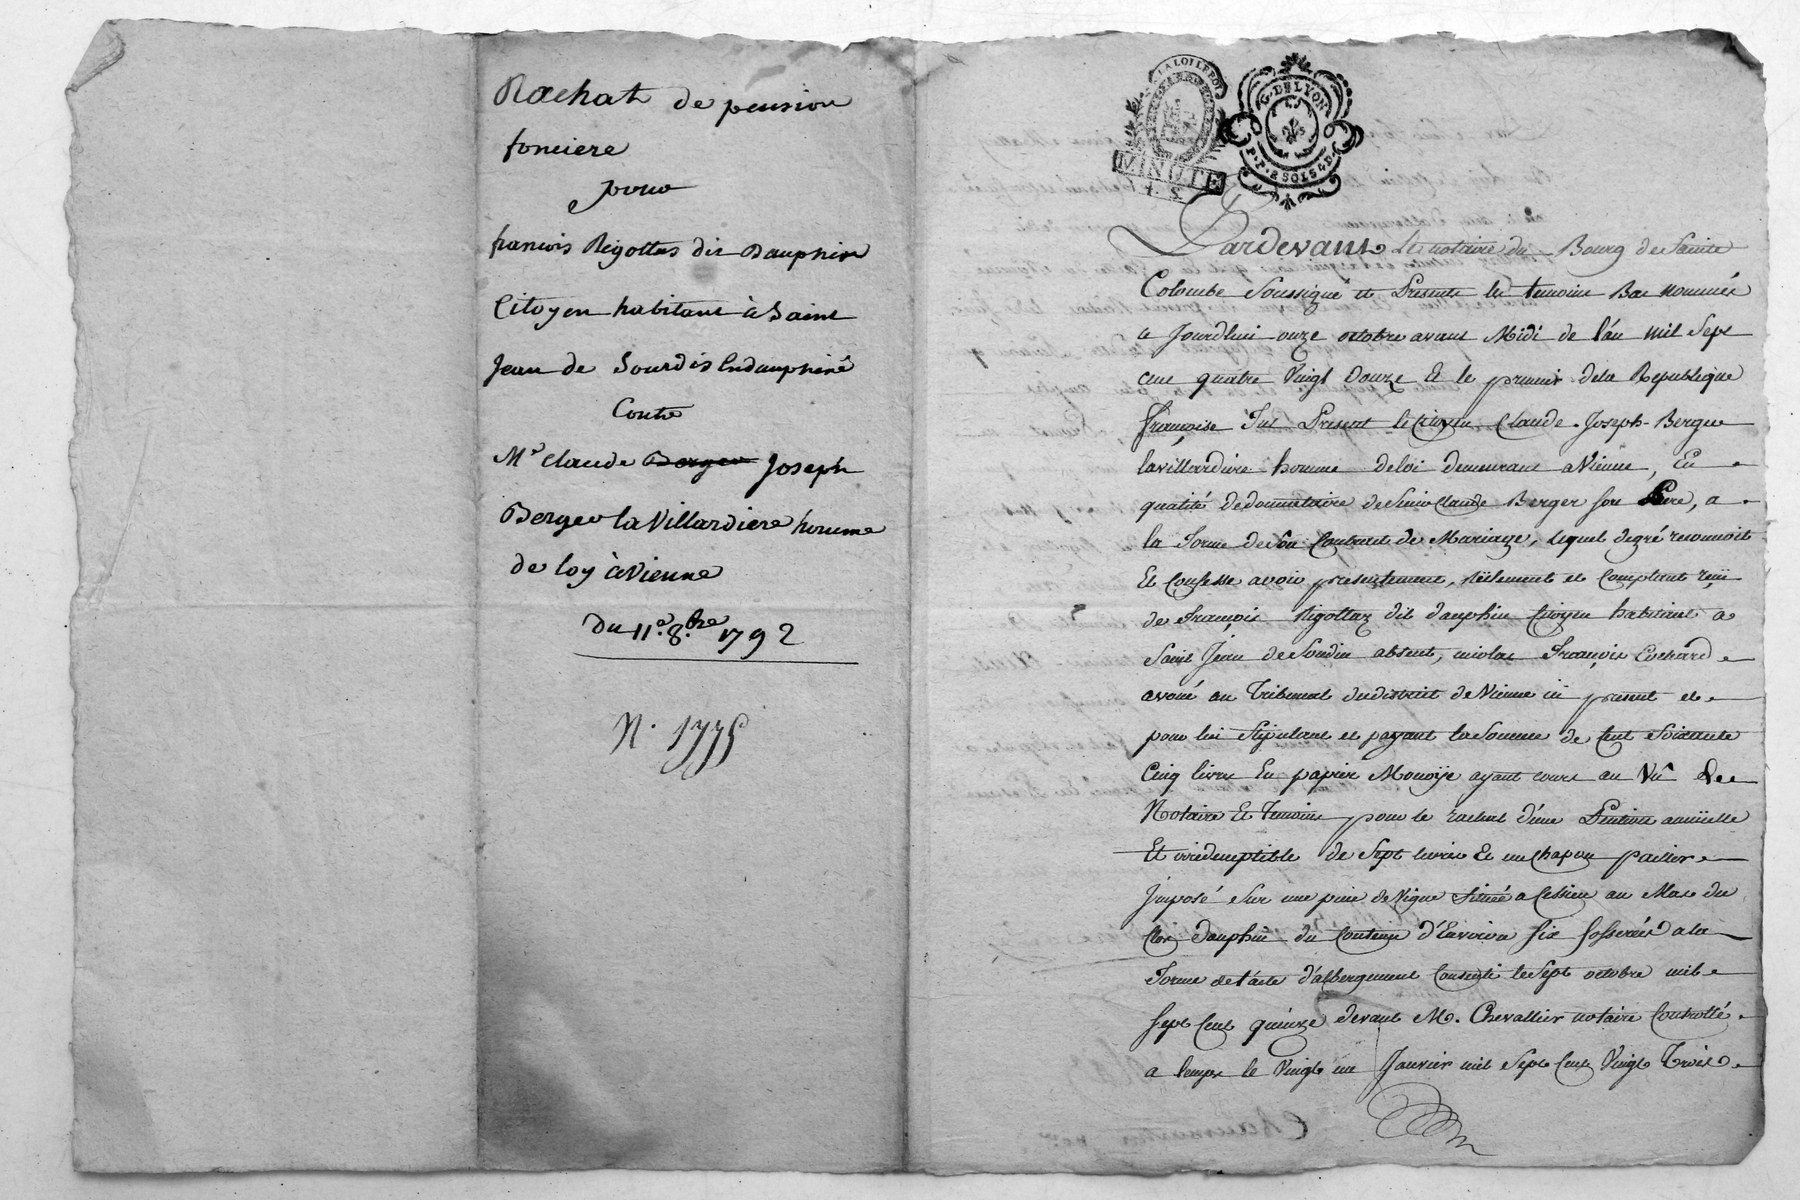 Rachat de pension
fonciere
pour
francois Rigottas dit Dauphin
Citoyen habitant à Saint
Jean de Sourdis En dauphiné
Contre
Mr Claude Berger Joseph
Berger la Villardiere homme
de loy à Vienne
Du 11e. 8.bre 1792
N. 1775
LA LOI LE ROI
MINUTE
4. S
G. DE LYON
P. P. 2 SOLS 4 D.
Pardevant Le notaire du Bourg de Sainte
Colombe Soussigné et Presents les temoins Bas nommés
a Jourdhui onze octobre avant Midi de l'an mil Sept
cent quatre Vingt Douze Et le premier de la Republique
françoise fut Present le Citoyen Claude Joseph Berger
lavillardiere homme de loi demeurant a Vienne, En
qualité de donnataire de Sieur Claude Berger son Pere, a
la forme de Son Contract de Mariage, lequel de gré reconnoit
Et Confesse avoir presentement, réëlement et Comptant reçu
de françois Rigottaz dit dauphin Citoyen habitant a
Saint Jean de Soudin absent, nicolas François Cochard
avoué au Tribunal du district de Vienne ici present et
pour lui Stipulant et payant la Somme de Cent Soixante
Cinq livres En papier Monoÿe ayant cours au Vû De
Notaire Et temoins pour le rachat d'une Pention annüelle
Et irredemptible de Sept livres Et un chapon pailler
Jmposé sur une piece de Vigne Située a Cessieu au Mas du
Clos dauphin du Contenu d'Environ six fosserées a la
forme de l'acte d'albergement Consenti le Sept octobre mil
sept Cent quinze devant M. Chevallier notaire Controllé
a temps le Vingt un Janvier mil Sept Cent Vingt Trois